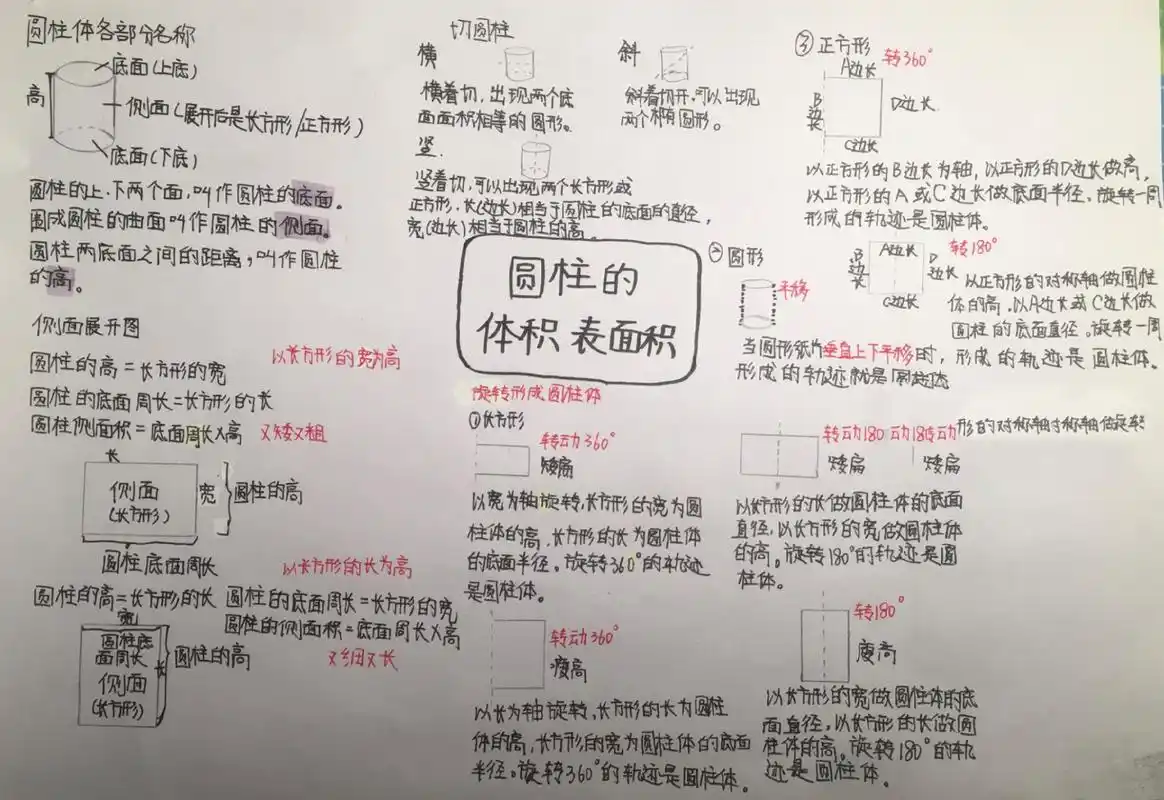 圆柱体各部分名称
底面(上底)
高
侧面(展开后是长方形/正方形)
底面(下底)
圆柱的上.下两个面,叫作圆柱的底面。
围成圆柱的曲面叫作圆柱的侧面。
圆柱两底面之间的距离,叫作圆柱
的高。
侧面展开图
以长方形的宽为高
圆柱的高=长方形的宽
圆柱的底面周长=长方形的长
圆柱侧面积=底面周长×高 又矮又粗
长
侧面
(长方形)
宽
圆柱的高
圆柱底面周长
以长方形的长为高
圆柱的高=长方形的长 圆柱的底面周长=长方形的宽
圆柱的侧面积=底面周长×高
又细又长
宽
圆柱底
面周长
侧面
(长方形)
长
圆柱的高
切圆柱
横
横着切,出现两个底
面面积相等的圆形。
斜
斜着切开,可以出现
两个椭圆形。
竖.
竖着切,可以出现两个长方形或
正方形.长(边长)相当于圆柱的底面的直径,
宽(边长)相当于圆柱的高。
圆柱的
体积 表面积
旋转形成圆柱体
①长方形
转动360°
矮扁
以宽为轴旋转,长方形的宽为圆
柱体的高.长方形的长为圆柱体
的底面半径。旋转360°的轨迹
是圆柱体。
转动360°
瘦高
以长为轴旋转,长方形的长为圆柱
体的高,长方形的宽为圆柱体的底面
半径。旋转360°的轨迹是圆柱体。
转动180 动18转动
形的对称轴对称轴做旋转
矮扁 矮扁
以长方形的长做圆柱体的底面
直径,以长方形的宽做圆柱体
的高。旋转180°的轨迹是圆
柱体。
转180°
瘦高
以长方形的宽做圆柱体的底
面直径,以长方形的长做圆
柱体的高。旋转180°的轨
迹是圆柱体。
②圆形
平移
当圆形纸片垂直上下平移时,
形成的轨迹就是
③正方形 转360°
A边长
B边长
D边长
C边长
以正方形的B边长为轴,以正方形的D边长做高,
以正方形的A或C边长做底面半径。旋转一周
形成的轨迹是圆柱体。
转180°
A边长
B边长
D边长
C边长
以正方形的对称轴做圆柱
体的高,以A边长或C边长做
圆柱的底面直径。旋转一周
形成的轨迹是圆柱体。